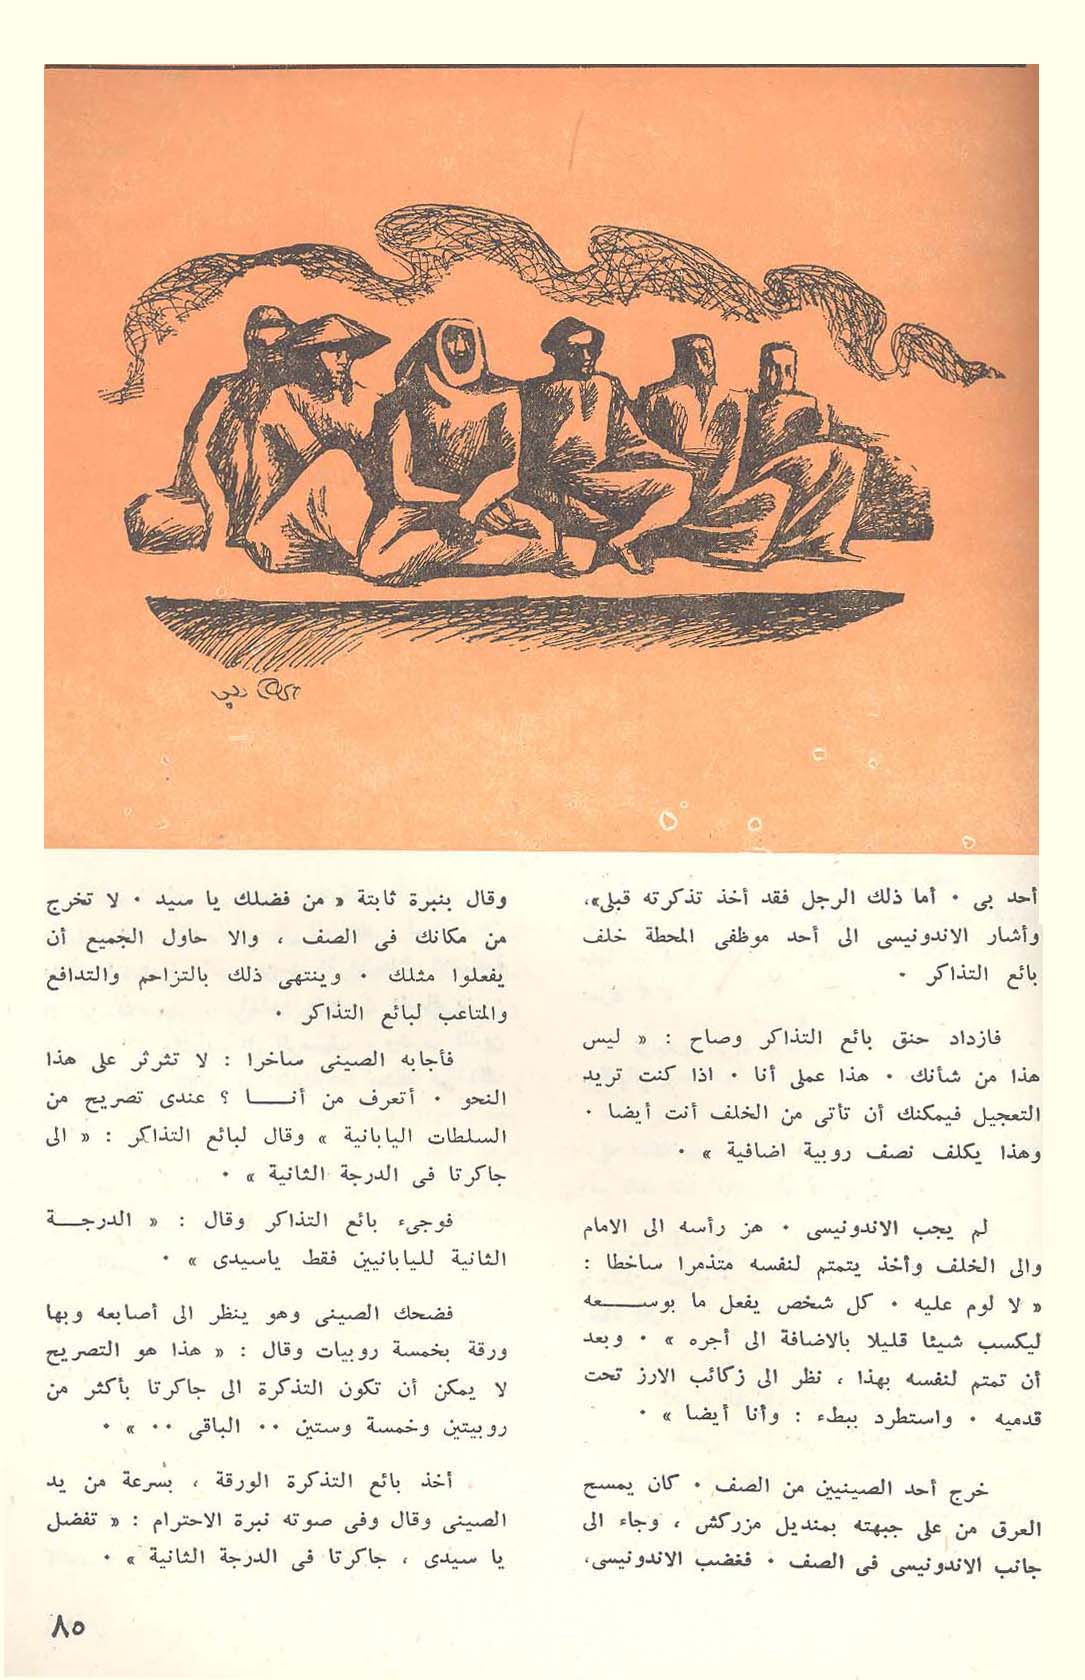 أحد بى ٠ أما ذلك الرجل فقد أخذ تذكرته قبلى»،
وأشار الاندونيسى الى أحد موظفى المحطة خلف
بائع التذاكر ٠
فازداد حنق بائع التذاكر وصاح : « ليس
هذا من شأنك ٠ هذا عملى أنا ٠ اذا كنت تريد
التعجيل فيمكنك أن تأتى من الخلف أنت أيضا ٠
وهذا يكلف نصف روبية اضافية » ٠
لم يجب الاندونيسى ٠ هز رأسه الى الامام
والى الخلف وأخذ يتمتم لنفسه متذمرا ساخطا :
« لا لوم عليه ٠ كل شخص يفعل ما بوســـعه
ليكسب شيئا قليلا بالاضافة الى أجره » ٠ وبعد
أن تمتم لنفسه بهذا ، نظر الى زكائب الارز تحت
قدميه ٠ واستطرد ببطء : وأنا أيضا » ٠
خرج أحد الصينيين من الصف ٠ كان يمسح
العرق من على جبهته بمنديل مزركش ، وجاء الى
جانب الاندونيسى فى الصف ٠ فغضب الاندونيسى،
وقال بنبرة ثابتة « من فضلك يا سيد ٠ لا تخرج
من مكانك فى الصف ، والا حاول الجميع أن
يفعلوا مثلك ٠ وينتهى ذلك بالتزاحم والتدافع
والمتاعب لبائع التذاكر ٠
فأجابه الصينى ساخرا : لا تثرثر على هذا
النحو ٠ أتعرف من أنـــا ؟ عندى تصريح من
السلطات اليابانية » وقال لبائع التذاكر : « الى
جاكرتا فى الدرجة الثانية » ٠
فوجىء بائع التذاكر وقال : « الدرجـــة
الثانية لليابانيين فقط ياسيدى » ٠
فضحك الصينى وهو ينظر الى أصابعه وبها
ورقة بخمسة روبيات وقال : « هذا هو التصريح
لا يمكن أن تكون التذكرة الى جاكرتا بأكثر من
روبيتين وخمسة وستين ٠٠ الباقى ٠٠ » ٠
أخذ بائع التذكرة الورقة ، بسرعة من يد
الصينى وقال وفى صوته نبرة الاحترام : « تفضل
يا سيدى ، جاكرتا فى الدرجة الثانية » ٠
٨٥